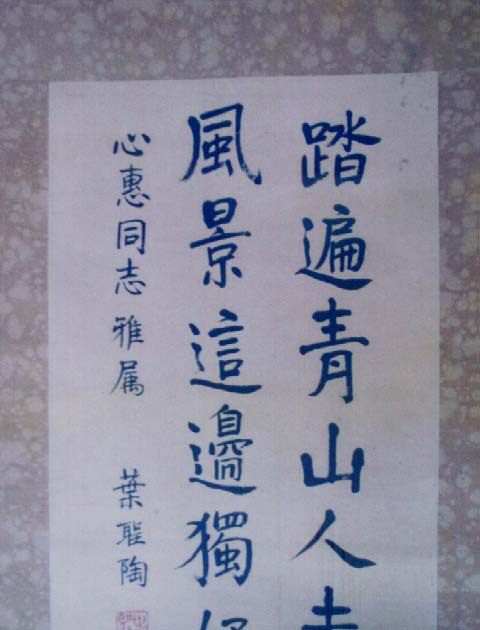 踏遍青山人
風景這邊獨
心惠同志雅属
葉聖陶